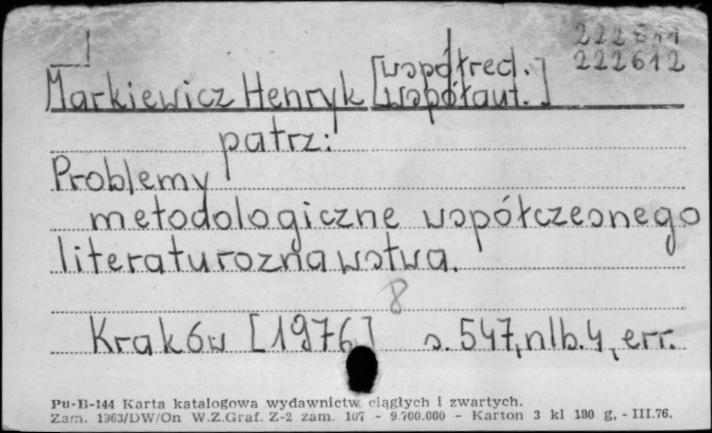 222611
222612
[współred.
Markiewicz Henryk [współaut.]
patrz:
Problemy
metodologiczne współczesnego
literaturoznawstwa.
8
Kraków [1976] s. 547, nlb. 4, err.
Pu-B-144 Karta katalogowa wydawnictw ciągłych i zwartych.
Zam. 1363/DW/On W.Z.Graf. Z-2 zam. 107 - 9.700.000 - Karton 3 kl 180 g. - III.76.